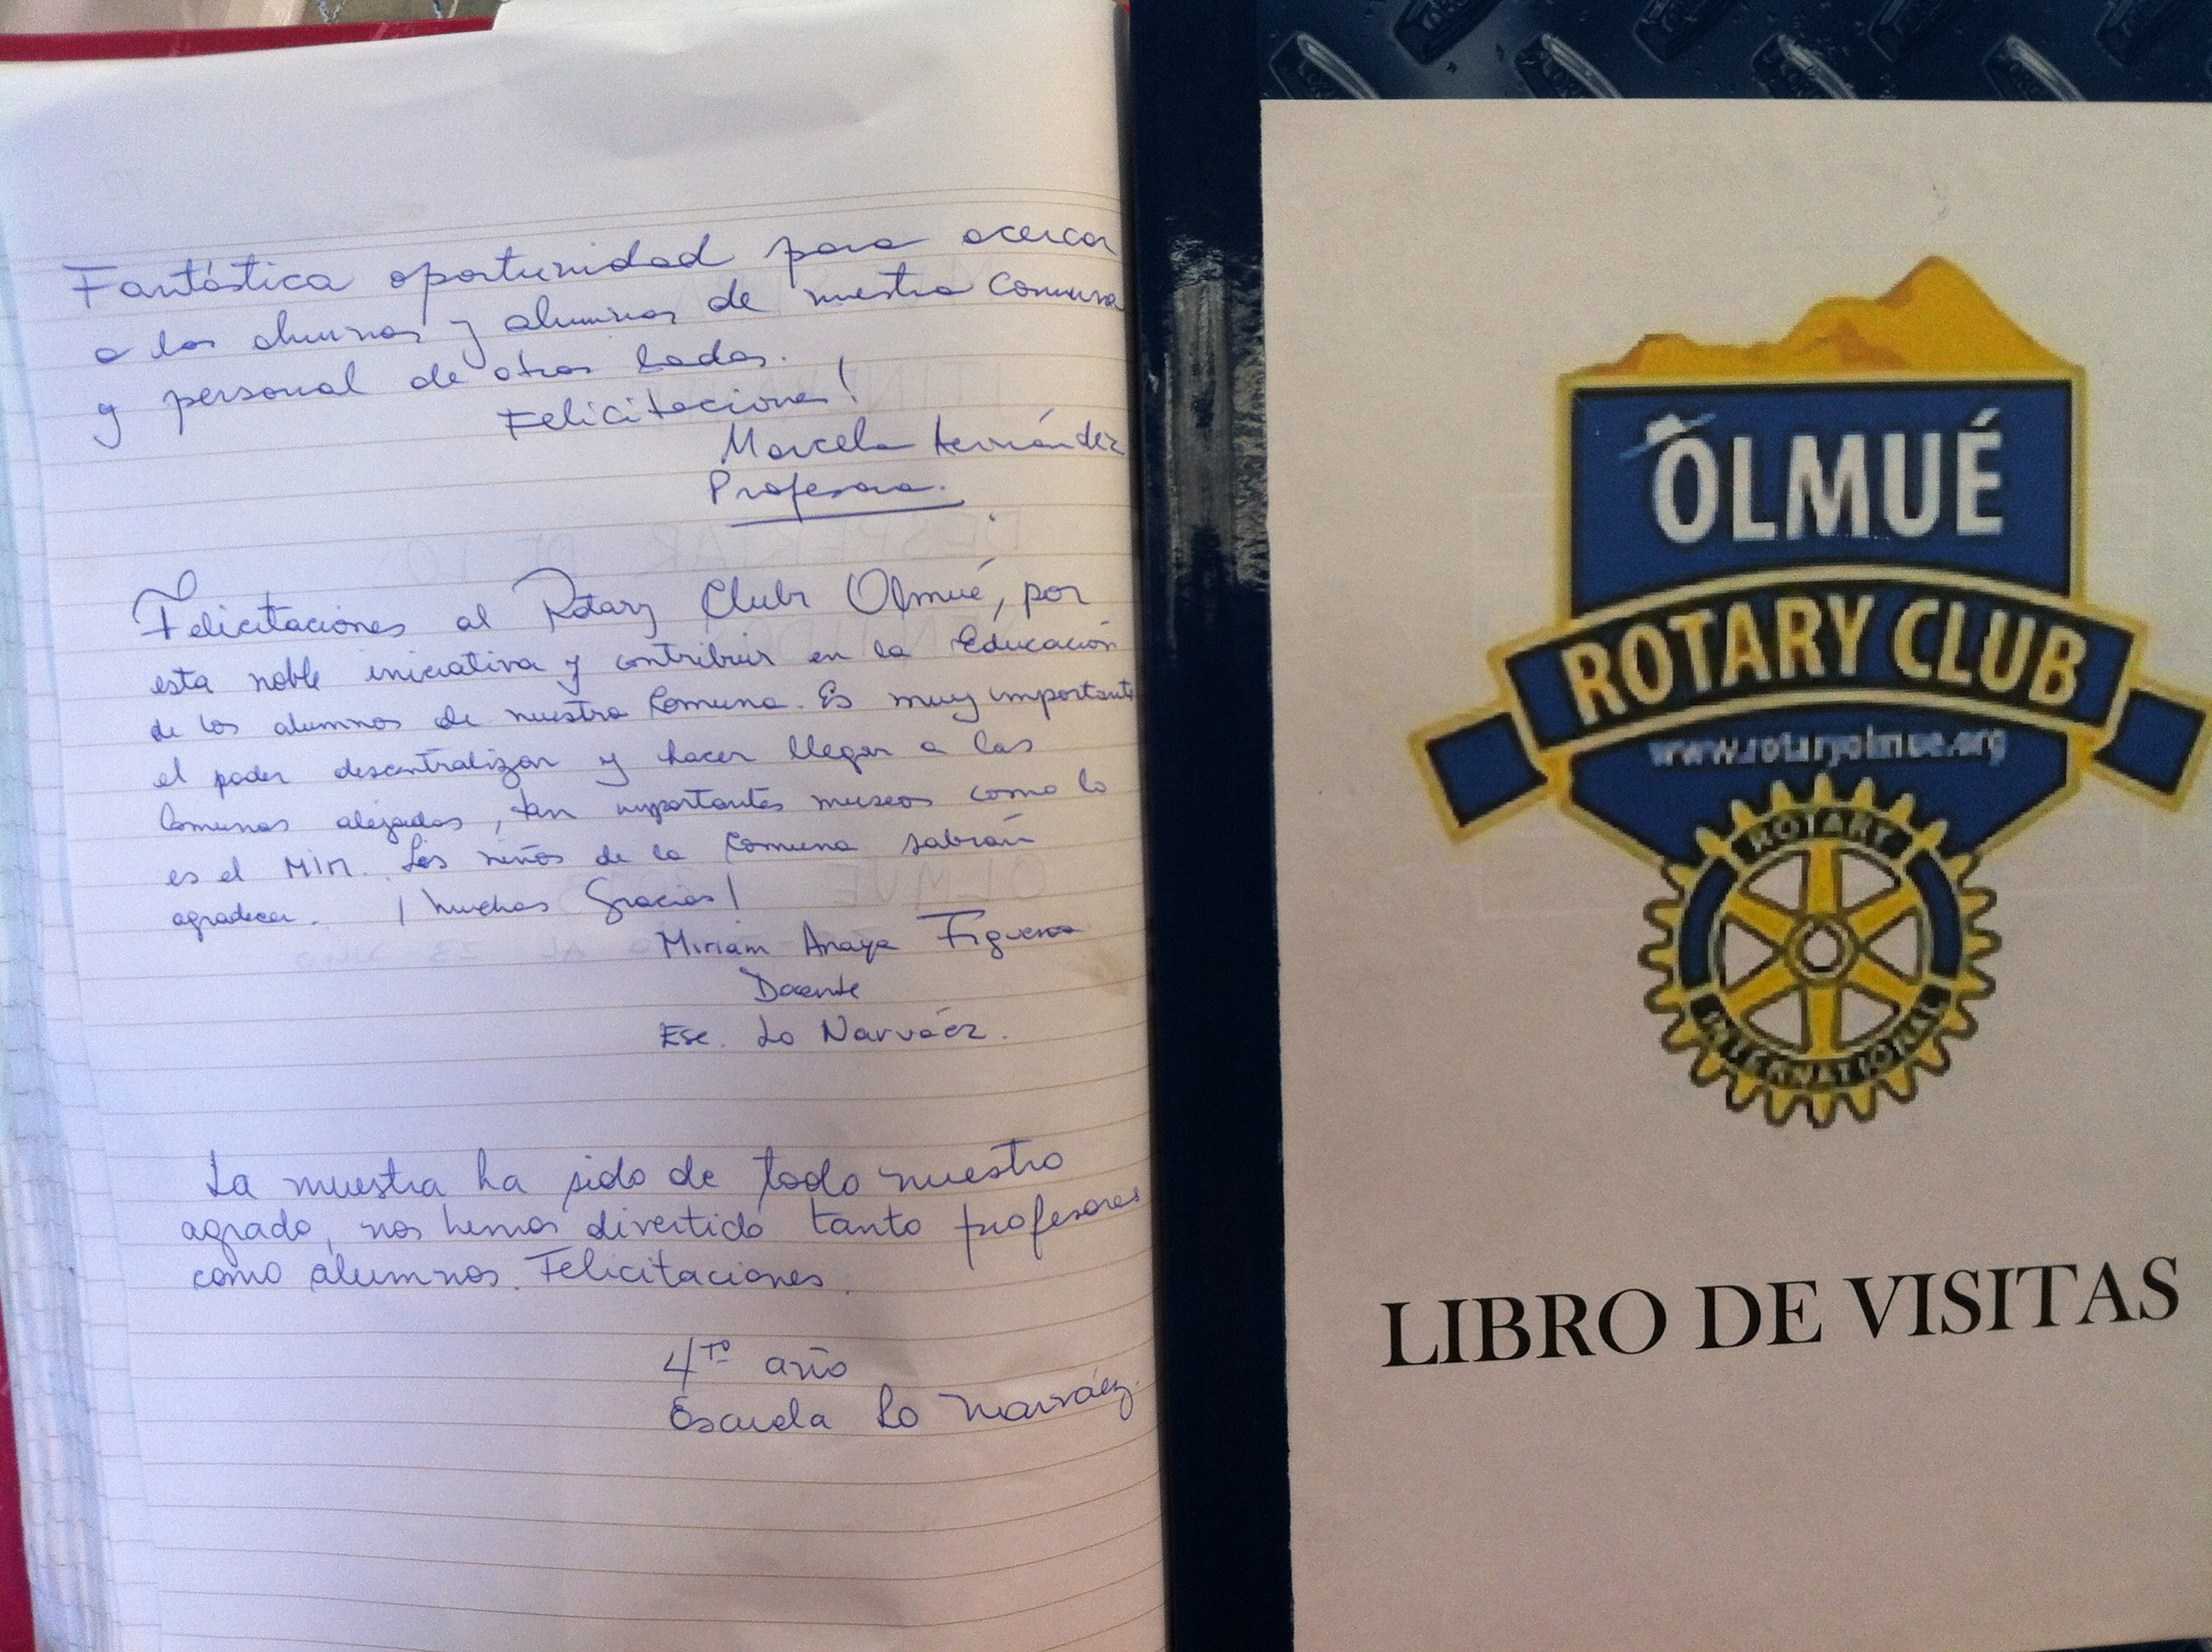 Fantástica oportunidad para acercar
a los alumnos y alumnas de nuestra comuna
y personal de otros lados.
Felicitaciones!
Marcela Hernández
Profesora.
Felicitaciones al Rotary Club Olmué, por
esta noble iniciativa y contribuir en la Educación
de los alumnos de nuestra Comuna. Es muy importante
el poder descentralizar y hacer llegar a las
Comunas alejadas, tan importantes museos como lo
es el MIM. Los niños de la Comuna sabrán
agradecer. ¡Muchas Gracias!
Miriam Anaya Figueroa
Docente
Esc. Lo Narváez.
La muestra ha sido de todo nuestro
agrado, nos hemos divertido tanto profesores
como alumnos. Felicitaciones.
4to año
Escuela Lo Narváez.
OLMUÉ
ROTARY CLUB
www.rotaryolmue.org
ROTARY
INTERNATIONAL
LIBRO DE VISITAS